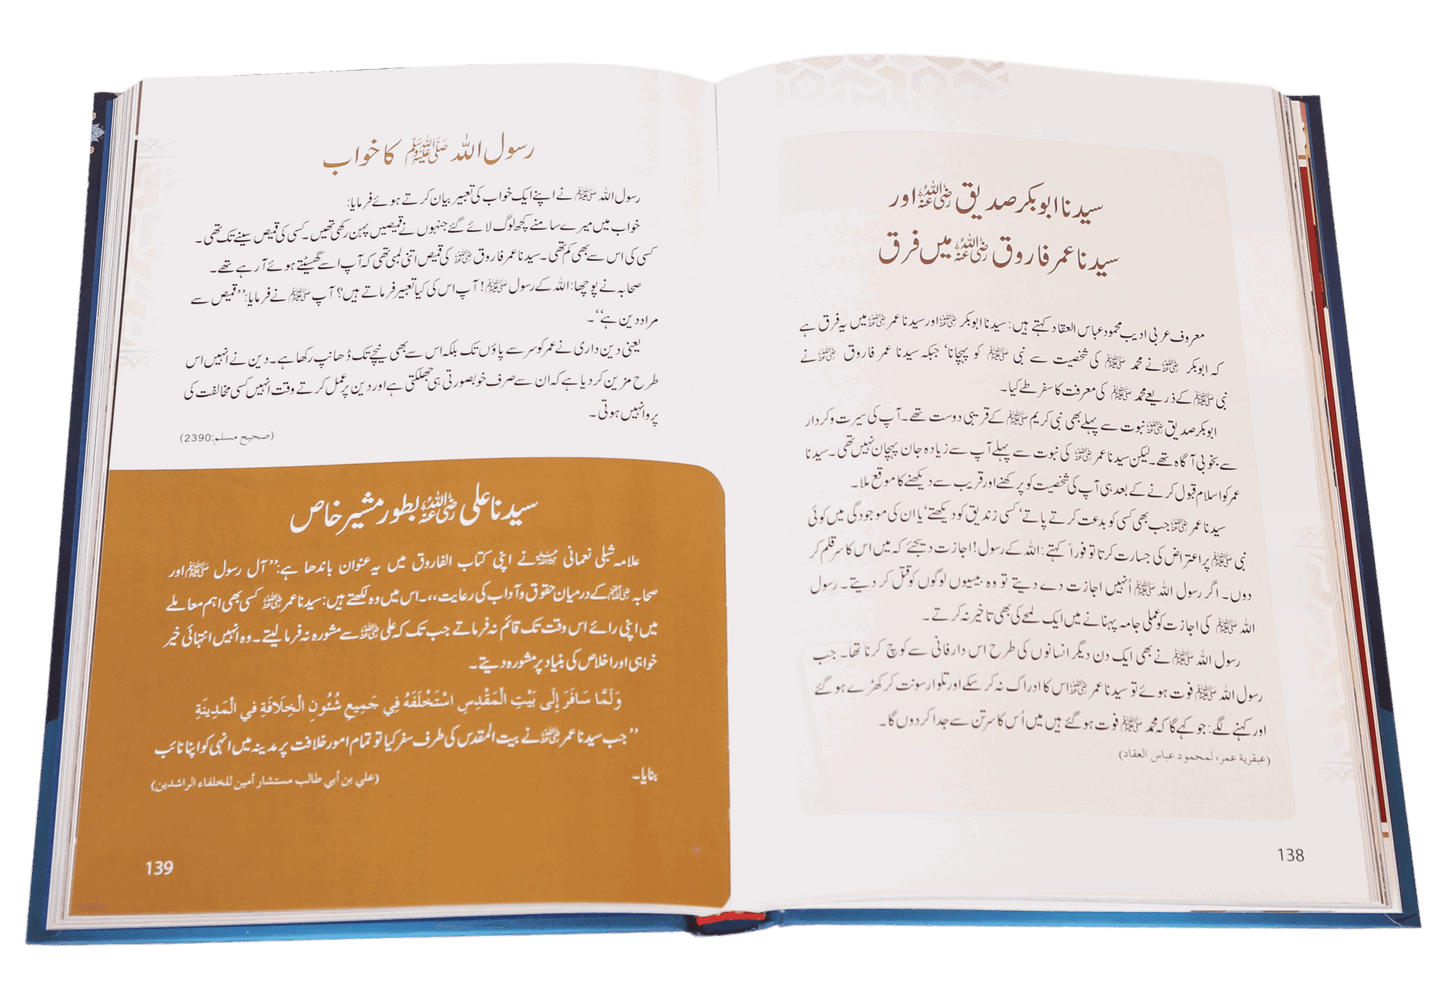 سیدنا ابوبکر صدیق رضی اللہ عنہ اور
سیدنا عمر فاروق رضی اللہ عنہ میں فرق
معروف عربی ادیب محمود عباس العقاد کہتے ہیں: سیدنا ابوبکر رضی اللہ عنہ اور سیدنا عمر رضی اللہ عنہ میں یہ فرق ہے
کہ ابوبکر رضی اللہ عنہ نے محمد ﷺ کی شخصیت سے نبی ﷺ کو پہچانا‘ جبکہ سیدنا عمر فاروق رضی اللہ عنہ نے
نبی ﷺ کے ذریعے محمد ﷺ کی معرفت کا سفر طے کیا۔
ابوبکر صدیق رضی اللہ عنہ نبوت سے پہلے بھی نبی کریم ﷺ کے قریبی دوست تھے۔ آپ کی سیرت و کردار
سے بخوبی آگاہ تھے۔ لیکن سیدنا عمر رضی اللہ عنہ کی نبوت سے پہلے آپ سے زیادہ جان پہچان نہیں تھی۔ سیدنا
عمر کو اسلام قبول کرنے کے بعد ہی آپ کی شخصیت کو پرکھنے اور قریب سے دیکھنے کا موقع ملا۔
سیدنا عمر رضی اللہ عنہ جب بھی کسی کو بدعت کرتے پاتے‘ کسی زندیق کو دیکھتے‘ یا ان کی موجودگی میں کوئی
نبی ﷺ پر اعتراض کی جسارت کرتا تو فوراً کہتے: اللہ کے رسول! اجازت دیجئے کہ میں اس کا سر قلم کر
دوں۔ اگر رسول اللہ ﷺ اُنہیں اجازت دے دیتے تو وہ بیسیوں لوگوں کو قتل کر دیتے۔ رسول
اللہ ﷺ کی اجازت کو عملی جامہ پہنانے میں ایک لمحے کی بھی تاخیر نہ کرتے۔
رسول اللہ ﷺ نے بھی ایک دن دیگر انسانوں کی طرح اس دار فانی سے کوچ کرنا تھا۔ جب
رسول اللہ ﷺ فوت ہوئے تو سیدنا عمر رضی اللہ عنہ اس کا ادراک نہ کر سکے اور تلوار سونت کر کھڑے ہو گئے
اور کہنے لگے: جو کہے گا کہ محمد ﷺ فوت ہو گئے ہیں میں اُس کا سر تن سے جدا کر دوں گا۔
(عبقرية عمر، لمحمود عباس العقاد)
138
رسول اللہ ﷺ کا خواب
رسول اللہ ﷺ نے اپنے ایک خواب کی تعبیر بیان کرتے ہوئے فرمایا:
خواب میں میرے سامنے کچھ لوگ لائے گئے جنہوں نے قمیصیں پہن رکھی تھیں۔ کسی کی قمیص سینے تک تھی۔
کسی کی اس سے بھی کم تھی۔ سیدنا عمر فاروق رضی اللہ عنہ کی قمیص اتنی لمبی تھی کہ آپ اسے گھسیٹتے ہوئے آ رہے تھے۔
صحابہ نے پوچھا: اللہ کے رسول ﷺ! آپ اس کی کیا تعبیر فرماتے ہیں؟ آپ ﷺ نے فرمایا: ’’قمیص سے
مراد دین ہے‘‘۔
یعنی دین داری نے عمر کو سر سے پاؤں تک بلکہ اس سے بھی نیچے تک ڈھانپ رکھا ہے۔ دین نے انہیں اس
طرح مزین کر دیا ہے کہ ان سے صرف خوبصورتی ہی جھلکتی ہے اور دین پر عمل کرتے وقت انہیں کسی مخالفت کی
پروا نہیں ہوتی۔
(صحیح مسلم:2390)
سیدنا علی رضی اللہ عنہ بطور مشیر خاص
علامہ شبلی نعمانی رحمہ اللہ نے اپنی کتاب الفاروق میں یہ عنوان باندھا ہے: ’’آل رسول ﷺ اور
صحابہ رضی اللہ عنہم کے درمیان حقوق و آداب کی رعایت،،۔ اس میں وہ لکھتے ہیں: سیدنا عمر رضی اللہ عنہ کسی بھی اہم معاملے
میں اپنی رائے اس وقت تک قائم نہ فرماتے جب تک کہ علی رضی اللہ عنہ سے مشورہ نہ فرما لیتے۔ وہ انہیں انتہائی خیر
خواہی اور اخلاص کی بنیاد پر مشورہ دیتے۔
وَلَمَّا سَافَرَ إِلَى بَيْتِ الْمَقْدِسِ اسْتَخْلَفَهُ فِي جَمِيعِ شُئُونِ الْخِلَافَةِ فِي الْمَدِينَةِ
’’جب سیدنا عمر رضی اللہ عنہ نے بیت المقدس کی طرف سفر کیا تو تمام امور خلافت پر مدینہ میں انہی کو اپنا نائب
بنایا۔
(علي بن أبي طالب مستشار أمين للخلفاء الراشدين)
139